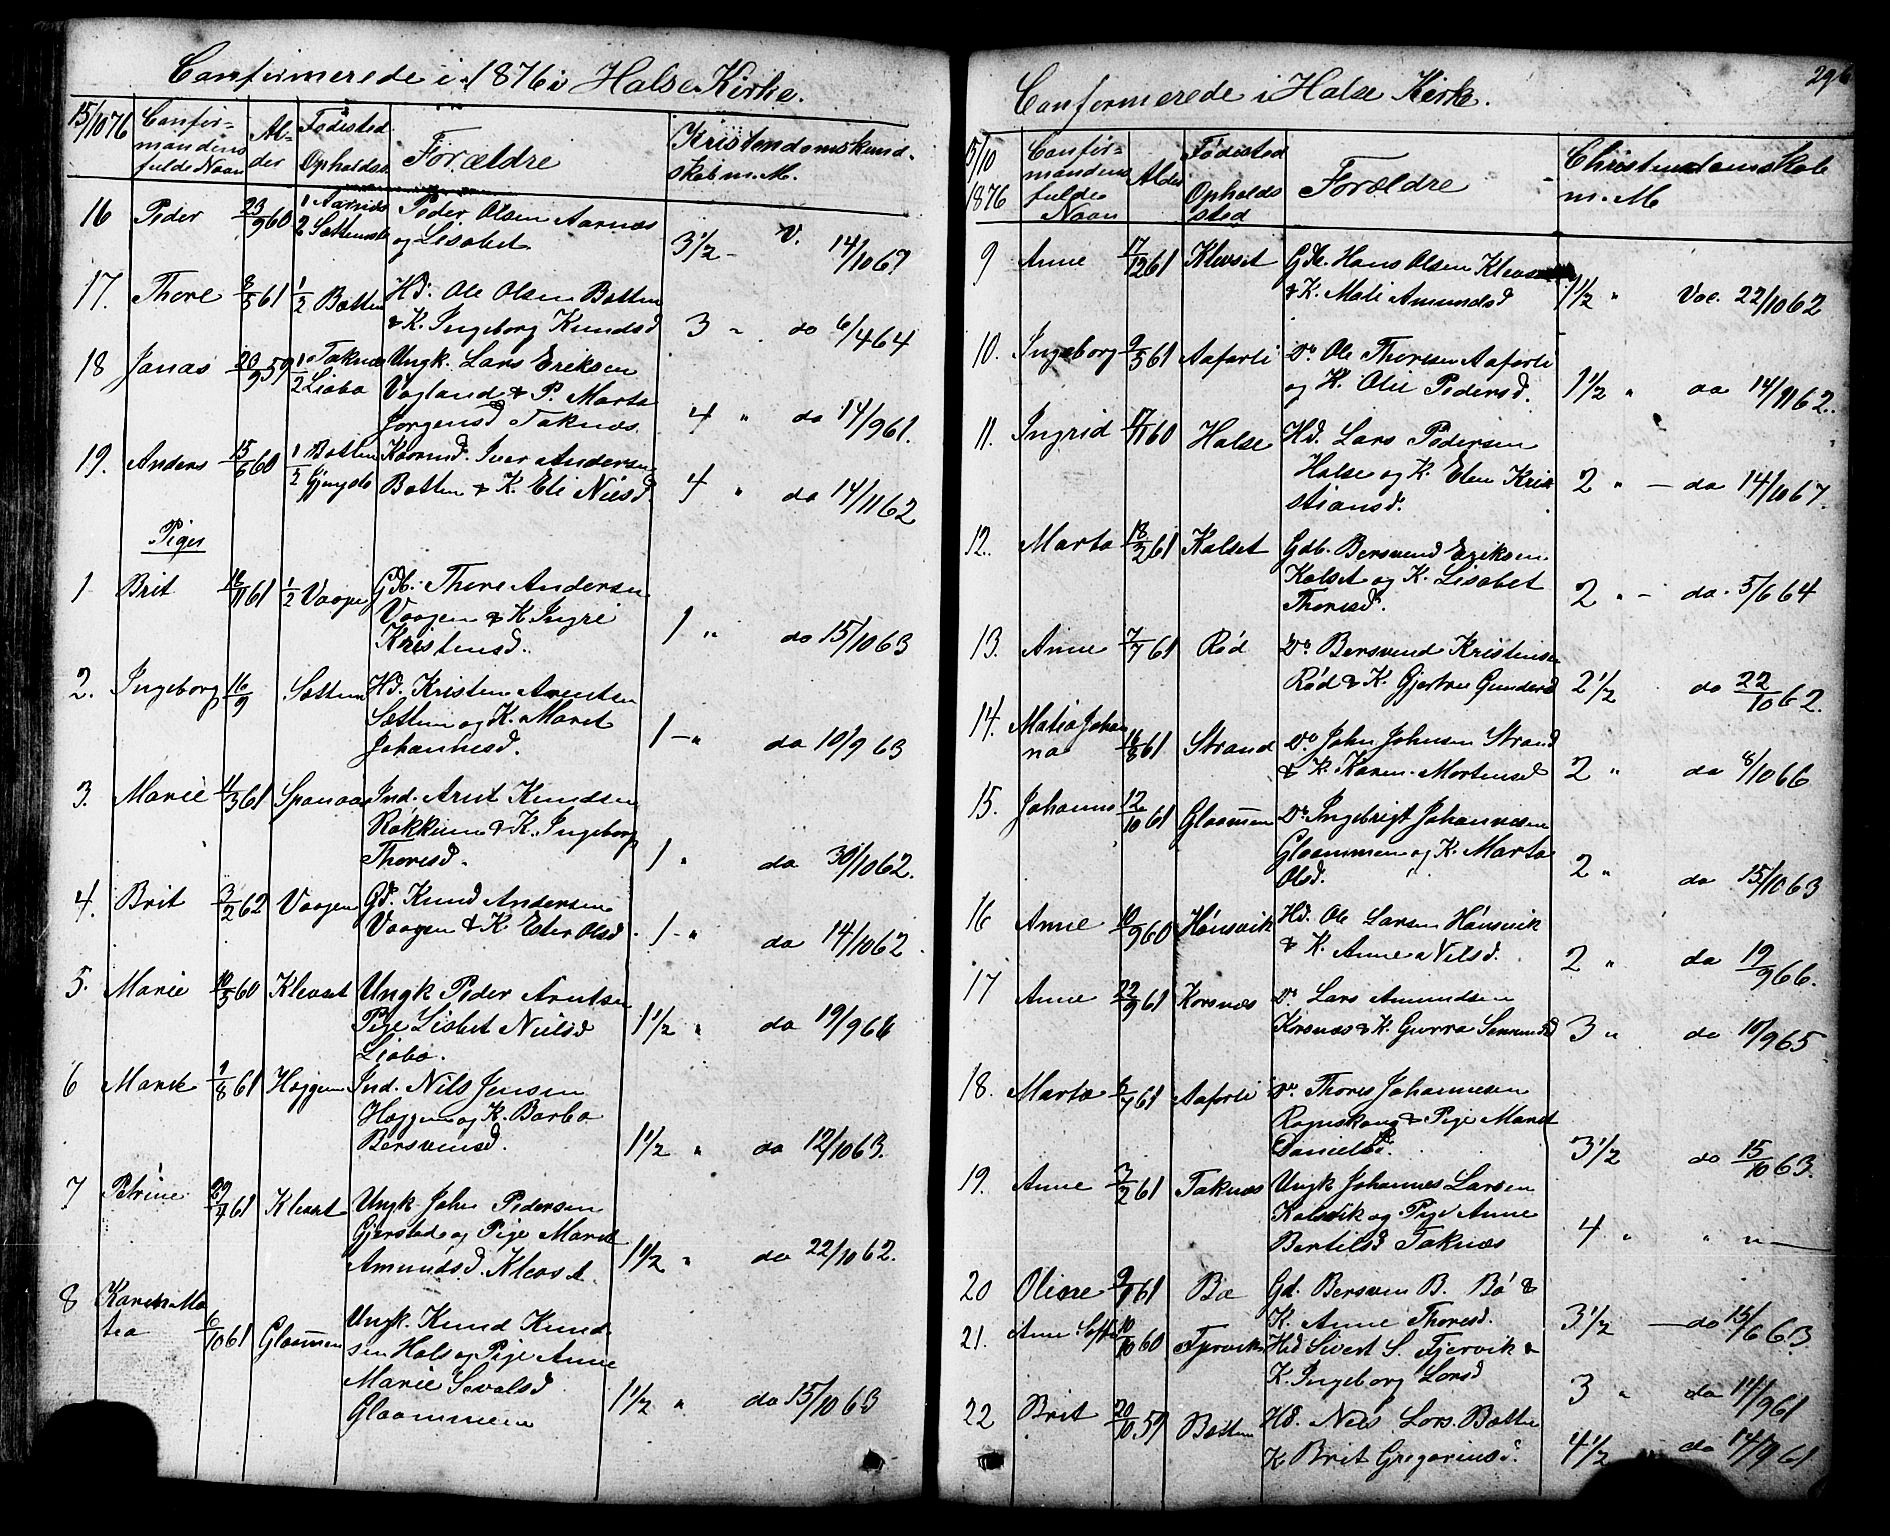 Confirmerede i 1876 i Halse Kirke.
15/10 76
Confir-
mandens
fulde Navn
Al-
der
Fødested
Opholdss.
Forældre
Kristendomskund-
skab m. M.
16 Peder 23/9 60 1 Aarnæs Peder Olsen Aarnæs
2 Sættem og Lisabet 3 1/2 - V. 14/10 67
17. Thore 8/5 61 1/2 Bøtten Hd. Ole Olsen Bøtten
& K. Ingeborg Knudsd 3 " do 6/4 64
18 Jonas 20/9 59 1 Taknæs Ungk. Lars Eriksen
2 Liabø Vagland & P. Marta
Jørgensd Taknæs. 4 " do 14/9 61.
19. Anders 15/6 60 1 Botten Iver Andersen
2 Botten & K. Eli Nilsd 4 " do 14/11 62
Piger
1 Brit 18/11 61 1/2 Vaagen Gdb. Thore Andersen
Vaagen & K. Ingri
Kristensd. 1 " do 15/10 63
2. Ingeborg 16/9 Sættem Hd. Kristen Arentsen
Sættem og K. Maret
Johannesd. 1 - " do 10/9 63
3. Marie 11/3 61 Spanaa Ind. Arnt Knudsen
Røkkum & K. Ingeborg
Thoresd. 1 " do 30/10 62.
4. Brit 3/2 62 Vaagen Gd. Knud Andersen
Vaagen & K Olsd. 1 - " do 14/10 62.
5. Marie 10/5 60 Klevset Ungk Peder Arntsen
Pige Lisbet Nielsd
Liabø. 1 1/2 " do 19/9 66
6 Marit 1/8 61 Haggen Ind. Nils Jensen
Haggen og K. Barbo
Bersvensd. 1 1/2 " do 12/10 63.
7 Petrine 27/4 61 Klevset Ungk John Pedersen
Gjerstad og Pige Marit
Amundsd. Klevset. 1 1/2 " do 22/10 62.
8 Karen Ma
tea 6/10 61 Glaamen Ungk. Knud Knud-
sen Hals og Pige Anne
Marie Sevalsd
Glaammen 1 1/2 " do 15/10 63
Confirmerede i Halse Kirke.
296
15/10
1876
Confir-
mandens
fulde
Navn
Alder
Fødested
Opholds
sted
Forældre
Christendomskab
m. M
9 Anne 17/12 61 Klevset Gdb. Hans Olsen Klevset
& K. Mali Amundsd 1 1/2 " Vac. 22/10 62
10. Ingeborg 9/5 61 Aafarli Do Ole Thoresen Aafarli
og K. Pedersd. 1 1/2 " do 14/11 62.
11. Ingrid 17/11 60 Halse Hd. Lars Pedersen
Halse og K. Elen Kri
stiansd. 2 " - do 14/10 67.
12. Marta 18/2 61 Kalset Gdb. Bersvend Eriksen
Kalset og K. Lisabet
Thoresd. 2 " - do. 5/6 64
13. Anne 7/7 61 Rød Do. Bersvend Kristensen
Rød & K. Gjertru Gundersd 2 1/2 do 22/10 62.
14. Matia Johan
na 16/8 61 Strand Do John Johnsen Strand
& K. Karen Mortensd 2 " do 8/10 66
15. Johanne 12/10 61 Glaammen Do Ingebrigt Johannesen
Glaammen og K. Marta
Olsd. 2 " do 15/10 63
16 Anne 10/9 60 Hønsvik Hd. Ole Larsen Hønsvik
& K. Anne Nilsd. 2 " do 19/9 66.
17 Anne 22/9 61 Korsnæs Do. Lars Amundsen
Korsnæs & K. Gurra 3 " do 10/9 65
18. Marta 6/7 61 Aafarli Do Thores Johannesen
Rognskaug & Pige Marit
Danielsd. 3 1/2 do 15/10 63.
19. Anne 3/2 61 Taknæs Ungk Johannes Larsen
Kalsvik og Pige Anne
Bertilsd Taknæs 4 " " "
20 Oline 9/1 61 Bø Gd. Bersven B. Bø &
K. Anne Thoresd. 3 1/2 - do 15/6 63.
21. Anne Soffie 10/10 60 Fjærvik Hd Sivert S. Fjervik &
K. Ingeborg Larsd 3 " do 14/9 61
22 Brit 20/10 59 Bøtten Hd. Niels Lars. Bøtten
K Brit Gregoriusd. 4 1/2 do 14/9 61